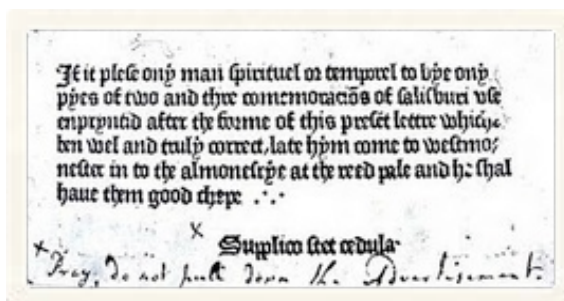 If it plese ony man spirituel or temporel to bye ony
pyes of two and thre comemoraciōs of salisburi vse
enpryntid after the forme of this presēt lettre whiche
ben wel and truly correct, late hym come to westmo:
nester in to the almonesrye at the reed pale and he shal
haue them good chepe .·.·
×
Supplico stet cedula
× Pray, do not pull down the Advertisement.